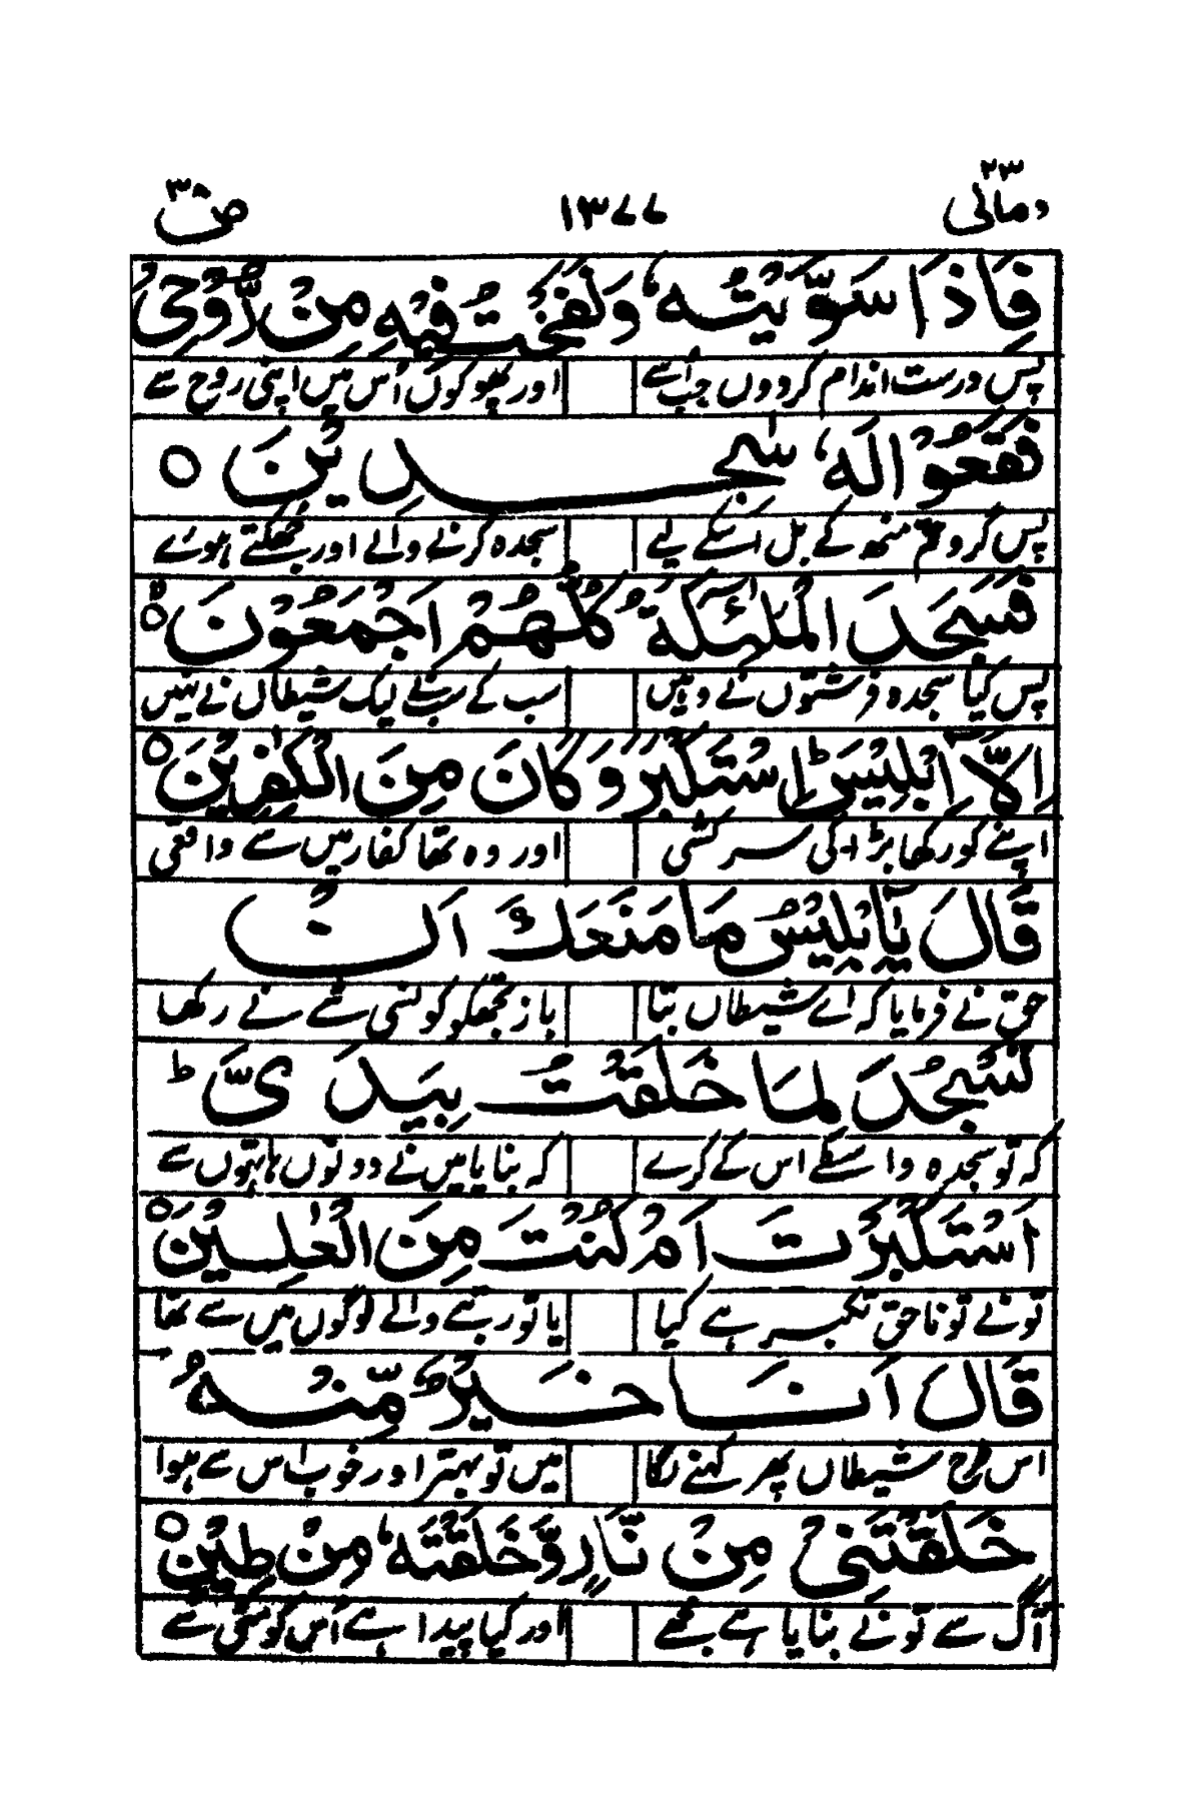 ومالی ۲۳ ۱۳۷۷ ص ۳۸
فَاِذَا سَوَّيْتُهٗ وَنَفَخْتُ فِيْهِ مِنْ رُّوْحِىْ
پس درست اندام کر دوں جب اُسے اور پھونکوں اُس میں اپنی روح سے
فَقَعُوْا لَهٗ سٰجِدِيْنَ ○
پس گرو تم منھ کے بل اُسکے لیے سجدہ کرنے والے اور جھکتے ہوئے
فَسَجَدَ الْمَلٰٓئِكَةُ كُلُّهُمْ اَجْمَعُوْنَ ○ۙ
پس کیا سجدہ فرشتوں نے وہیں سب کے سب نے لیک شیطاں نے نہیں
اِلَّاۤ اِبْلِيْسَ ؕ اِسْتَكْبَرَ وَكَانَ مِنَ الْكٰفِرِيْنَ ○
اپنے کو رکھا بڑا کی سرکشی اور وہ تھا کفار میں سے واقعی
قَالَ يٰۤاِبْلِيْسُ مَا مَنَعَكَ اَنْ
حق نے فرمایا کہ اے شیطاں بتا باز تجھکو کونسی شے نے رکھا
تَسْجُدَ لِمَا خَلَقْتُ بِيَدَىَّ ؕ
کہ تو سجدہ واسطے اس کے کرے کہ بنایا میں نے دونوں ہاتھوں سے
اَسْتَكْبَرْتَ اَمْ كُنْتَ مِنَ الْعٰلِيْنَ ○
تو نے تو ناحق تکبر ہے کیا یا تو رتبے والے لوگوں میں سے تھا
قَالَ اَنَا خَيْرٌ مِّنْهُ ؕ
اس طرح شیطاں پھر کہنے لگا میں تو بہتر اور خوب اس سے ہوا
خَلَقْتَنِىْ مِنْ نَّارٍ وَّخَلَقْتَهٗ مِنْ طِيْنٍ ○
آگ سے تو نے بنایا ہے مجھے اور کیا پیدا ہے اُس کو مٹی سے